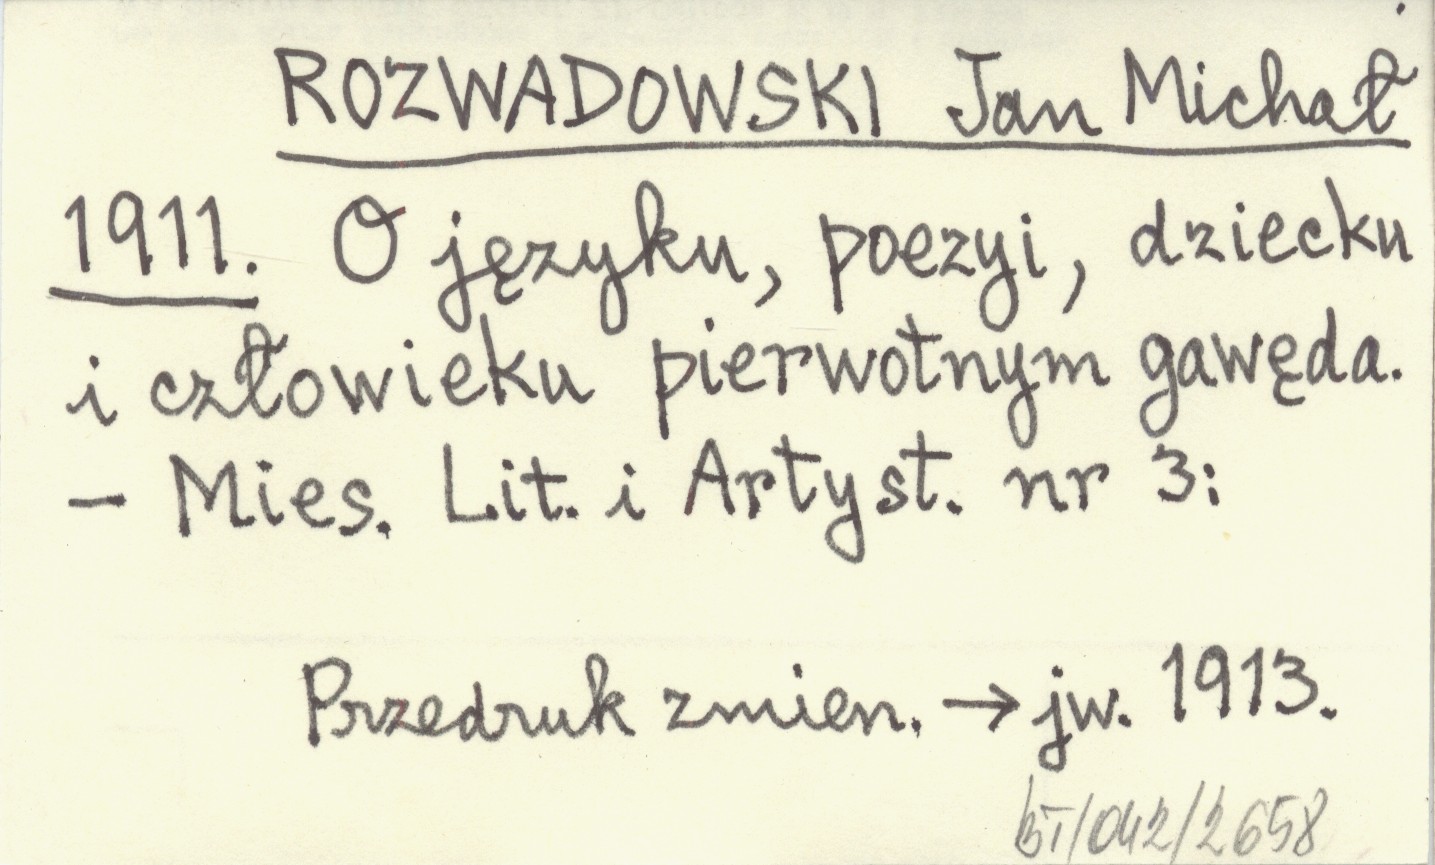 ROZWADOWSKI Jan Michał
1911. O języku, poezyi, dziecku
i człowieku pierwotnym gawęda.
– Mies. Lit. i Artyst. nr 3:
Przedruk zmien. → jw. 1913.
BI/042/2658